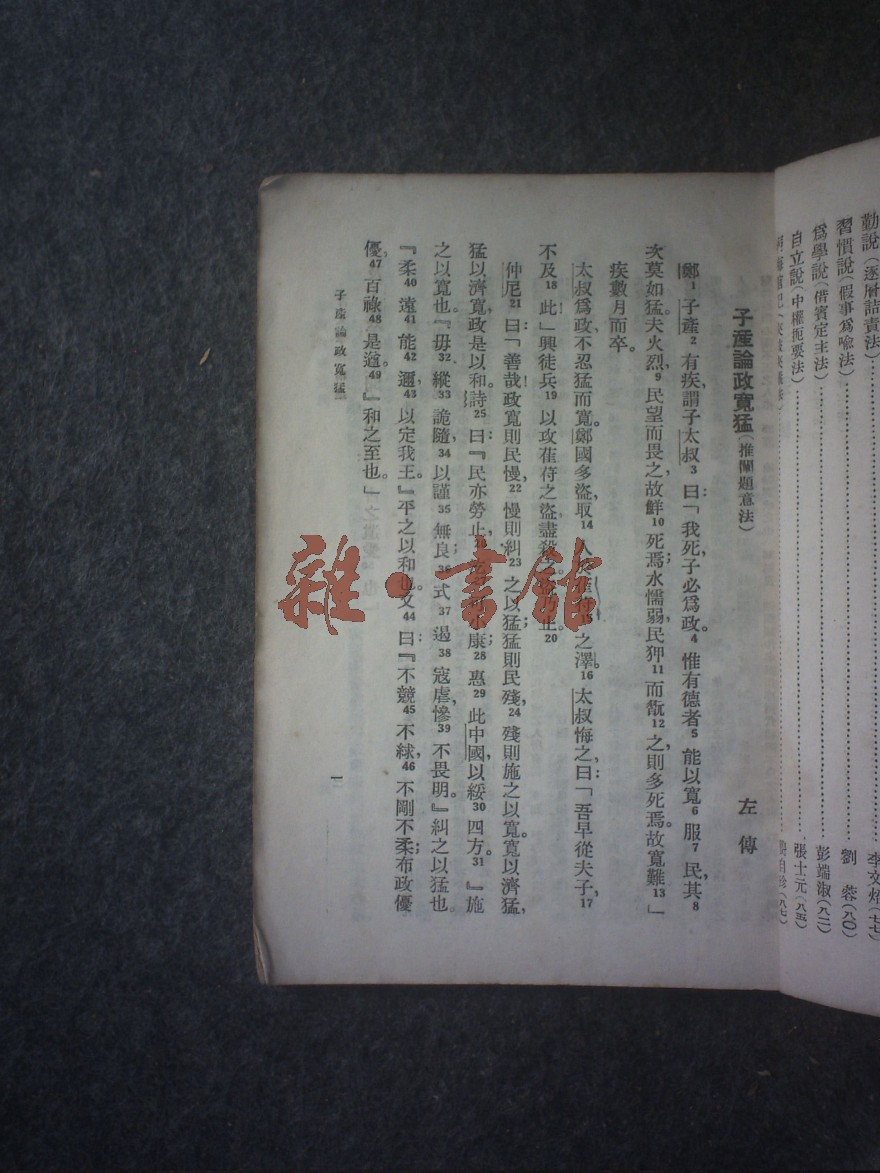 勤說(逐層詰責法)……李文炤(七七)
習慣說(假事爲喩法)……劉 蓉(八〇)
爲學說(借賓定主法)……彭端淑(八二)
自立說(中權扼要法)……張士元(八五)
子產論政寬猛(推闡題意法) 左 傳
鄭1子產2有疾,謂子太叔3曰:「我死,子必爲政。4惟有德者5能以寬6服7民,其8
次莫如猛。夫火烈,9民望而畏之,故鮮10死焉;水懦弱,民狎11而翫12之,則多死焉。故寬難13」
疾數月而卒。
太叔爲政,不忍猛而寬。鄭國多盜,取14人於萑苻15之澤。16太叔悔之,曰:「吾早從夫子,17
不及18此」興徒兵19以攻萑苻之盜,盡殺之。盜少止。20
仲尼21曰:「善哉!政寬則民慢,22慢則糾23之以猛;猛則民殘,24殘則施之以寬。寬以濟猛,
猛以濟寬,政是以和。詩25曰:『民亦勞止,26汔27可小康;28惠29此中國,以綏30四方。31』施
之以寬也。『毋32縱33詭隨,34以謹35無良36式37遏38寇虐,慘39不畏明。』糾之以猛也。
『柔40遠41能42邇43以定我王。』平之以和也。又44曰:『不競45不絿,46不剛不柔;布政優
優,47百祿48是遒。49』和之至也。」
子產論政寬猛
一
雜·書館